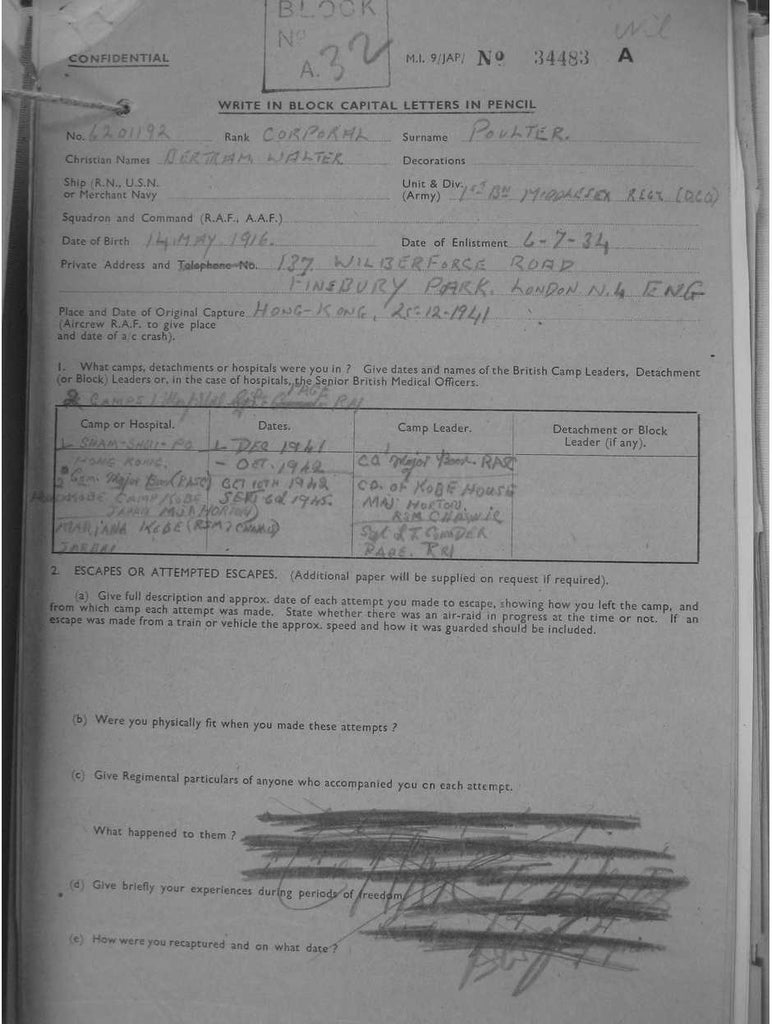 BLOCK
No
A.32
Nil
CONFIDENTIAL
M.I. 9/JAP/ No 34483 A
WRITE IN BLOCK CAPITAL LETTERS IN PENCIL
No. 6201192 Rank CORPORAL Surname POULTER.
Christian Names BERTRAM WALTER Decorations
Ship (R.N., U.S.N. or Merchant Navy Unit & Div. (Army) 1ST BN MIDDLESEX REGT (DCO)
Squadron and Command (R.A.F., A.A.F.)
Date of Birth 14 MAY 1916. Date of Enlistment 6-7-34
Private Address and Telephone No. 137 WILBERFORCE ROAD
FINSBURY PARK. LONDON N.4 ENG
Place and Date of Original Capture HONG-KONG, 25-12-1941
(Aircrew R.A.F. to give place
and date of a/c crash).
1. What camps, detachments or hospitals were you in ? Give dates and names of the British Camp Leaders, Detachment
(or Block) Leaders or, in the case of hospitals, the Senior British Medical Officers.
2 CAMPS 1 Hospital
Camp or Hospital. Dates. Camp Leader. Detachment or Block Leader (if any).
1. SHAM-SHUI-PO 1 DEC 1941
HONG KONG. - OCT. 1942 CO Major RASC
(RASC) OCT 10TH 1942 CO. OF KOBE HOUSE
KOBE CAMP KOBE SEPT 1945. MAJ HORTON.
JAPAN RSM
KOBE (RSM
2. ESCAPES OR ATTEMPTED ESCAPES. (Additional paper will be supplied on request if required).
(a) Give full description and approx. date of each attempt you made to escape, showing how you left the camp, and
from which camp each attempt was made. State whether there was an air-raid in progress at the time or not. If an
escape was made from a train or vehicle the approx. speed and how it was guarded should be included.
(b) Were you physically fit when you made these attempts ?
(c) Give Regimental particulars of anyone who accompanied you on each attempt.
What happened to them ?
(d) Give briefly your experiences during periods of freedom
(e) How were you recaptured and on what date ?